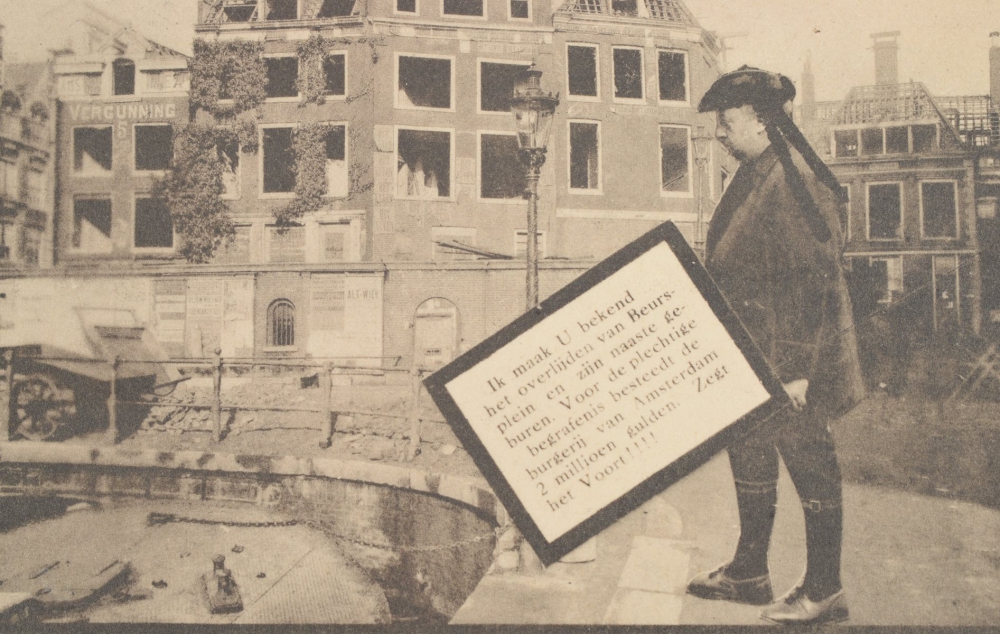 VERGUNNING
Ik maak U bekend
het overlijden van Beurs-
plein en zijn naaste ge-
buren. Voor de plechtige
begrafenis besteedt de
burgerij van Amsterdam
2 millioen gulden. Zegt
het Voort!!!!